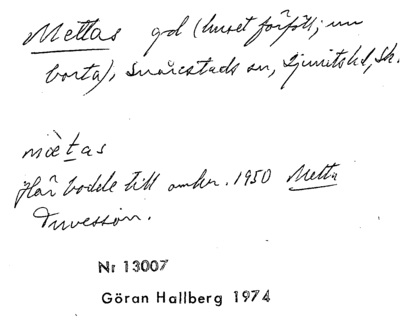 Mettas gd (huset förföll; nu
borta), Svårestads sn, Ljunits hd, Sk.
mæ̀tas
Här bodde till omkr. 1950 Metta
Tuvesson.
Nr 13007
Göran Hallberg 1974